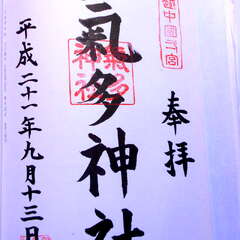 奉拝
越中國弌宮
氣多神社
氣多神社
平成二十一年九月十三日